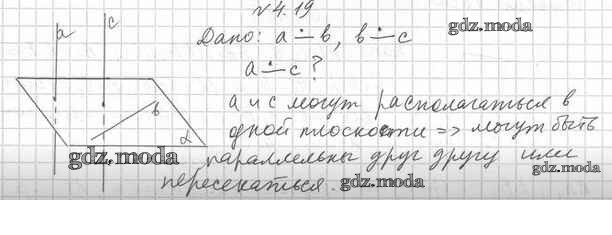 № 4.19
a c Дано: a ∸ b, b ∸ c gdz.moda
a ∸ c ?
a и c могут располагаться в
b
одной плоскости => могут быть
α
gdz.moda параллельны друг другу или
gdz.moda
пересекаться. gdz.moda